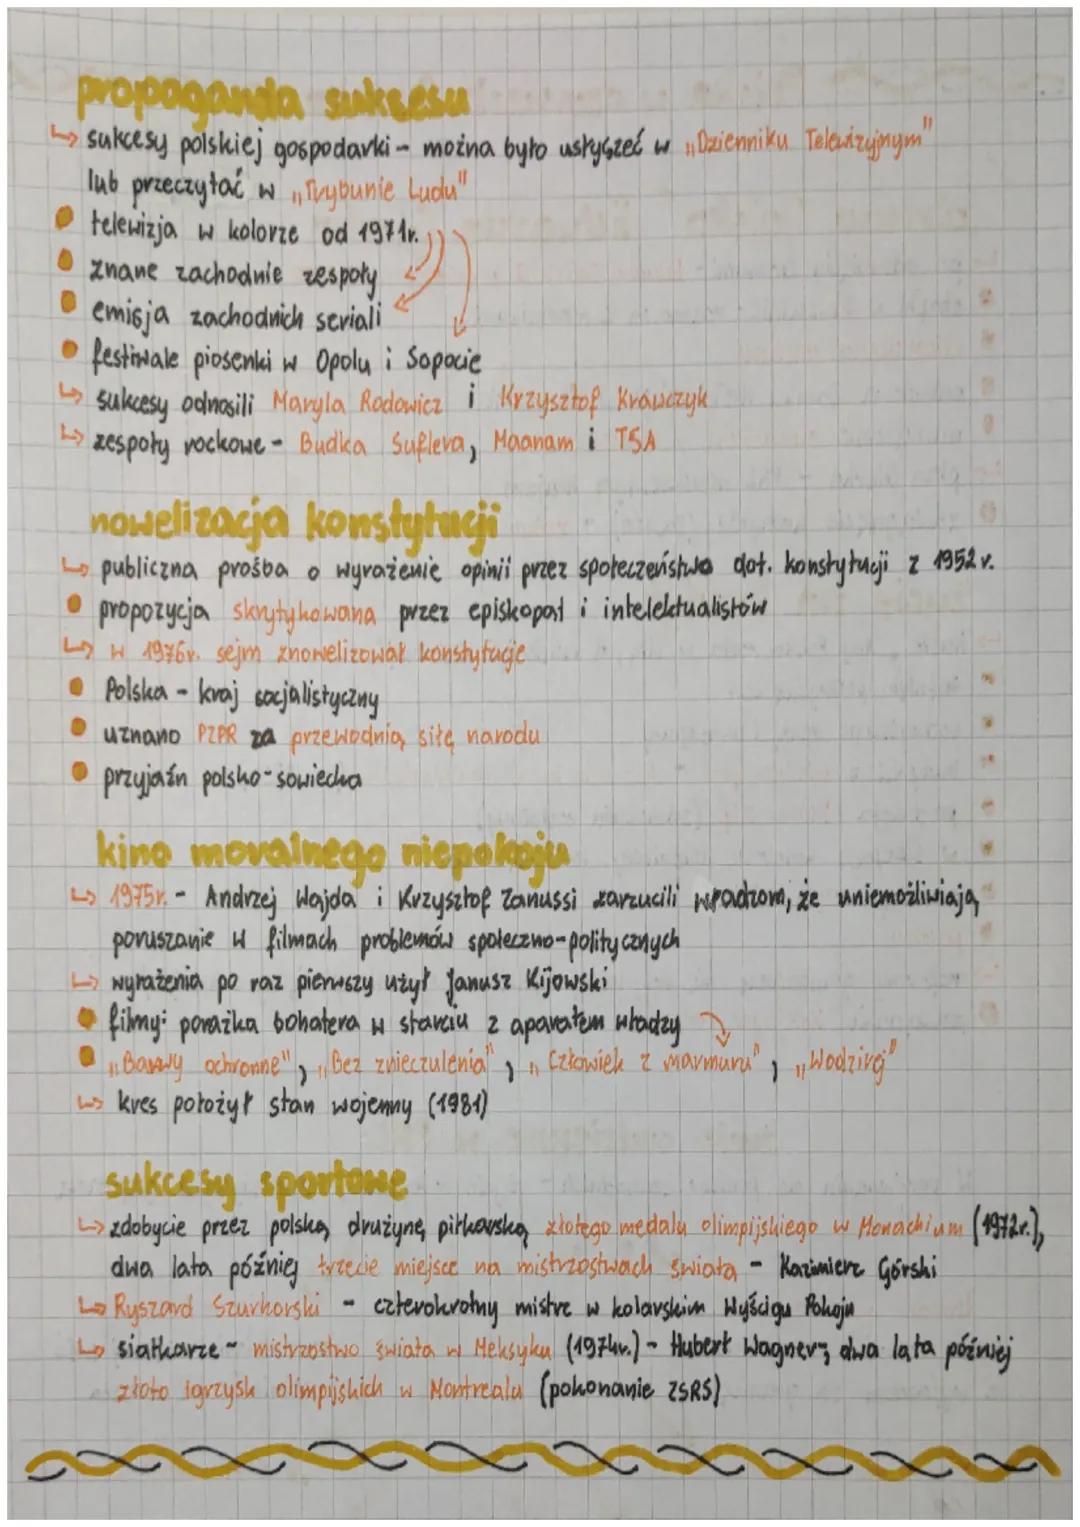 propaganda sukcesu
↳ sukcesy polskiej gospodarki - można było usłyszeć w „Dzienniku Telewizyjnym"
lub przeczytać w „Trybunie Ludu"
● telewizja w kolorze od 1971r.
● znane zachodnie zespoły
● emisja zachodnich seriali
● festiwale piosenki w Opolu i Sopocie
↳ sukcesy odnosili Maryla Rodowicz i Krzysztof Krawczyk
↳ zespoły rockowe - Budka Suflera, Maanam i TSA
nowelizacja konstytucji
↳ publiczna prośba o wyrażenie opinii przez społeczeństwo dot. konstytucji z 1952r.
● propozycja skrytykowana przez episkopat i intelektualistów
↳ w 1976r. sejm znowelizował konstytucję
● Polska - kraj socjalistyczny
● uznano PZPR za przewodnią siłę narodu
● przyjaźn polsko-sowiecka
kino moralnego niepokoju
↳ 1975r. - Andrzej Wajda i Krzysztof Zanussi zarzucili władzom, że uniemożliwiają
poruszanie w filmach problemów społeczno-politycznych
↳ wyrażenia po raz pierwszy użył Janusz Kijowski
● filmy: porażka bohatera w starciu z aparatem władzy
● „Barwy ochronne", „Bez znieczulenia", „Człowiek z marmuru", „Wodzirej"
↳ kres położył stan wojenny (1981)
sukcesy sportowe
↳ zdobycie przez polską drużynę piłkarską złotego medalu olimpijskiego w Monachium (1972r.),
dwa lata później trzecie miejsce na mistrzostwach świata - Kazimierz Górski
↳ Ryszard Szurkowski - czterokrotny mistrz w kolarskim Wyścigu Pokoju
↳ siatkarze - mistrzostwo świata w Meksyku (1974r.) - Hubert Wagner; dwa lata później
złoto igrzysk olimpijskich w Montrealu (pokonanie ZSRS)